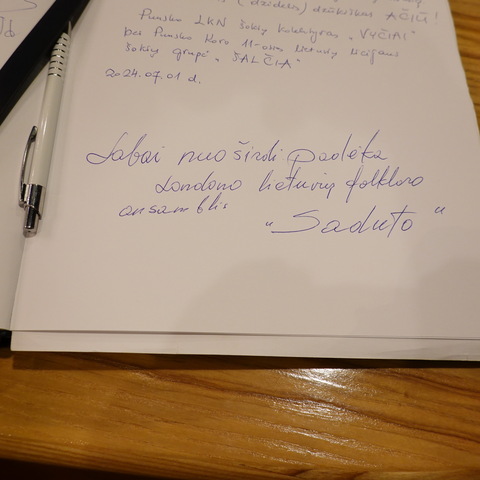 (dzidelis) dzūkiškas AČIŪ!
Punsko LKN šokių kolektyvas „VYČIAI"
bei Punsko Kovo 11-osios lietuvių licėjaus
šokių grupė „ŠALČIA"
2024.07.01 d.
Labai nuoširdi padėka
Londono lietuvių folkloro
ansamblis
„Saduto"